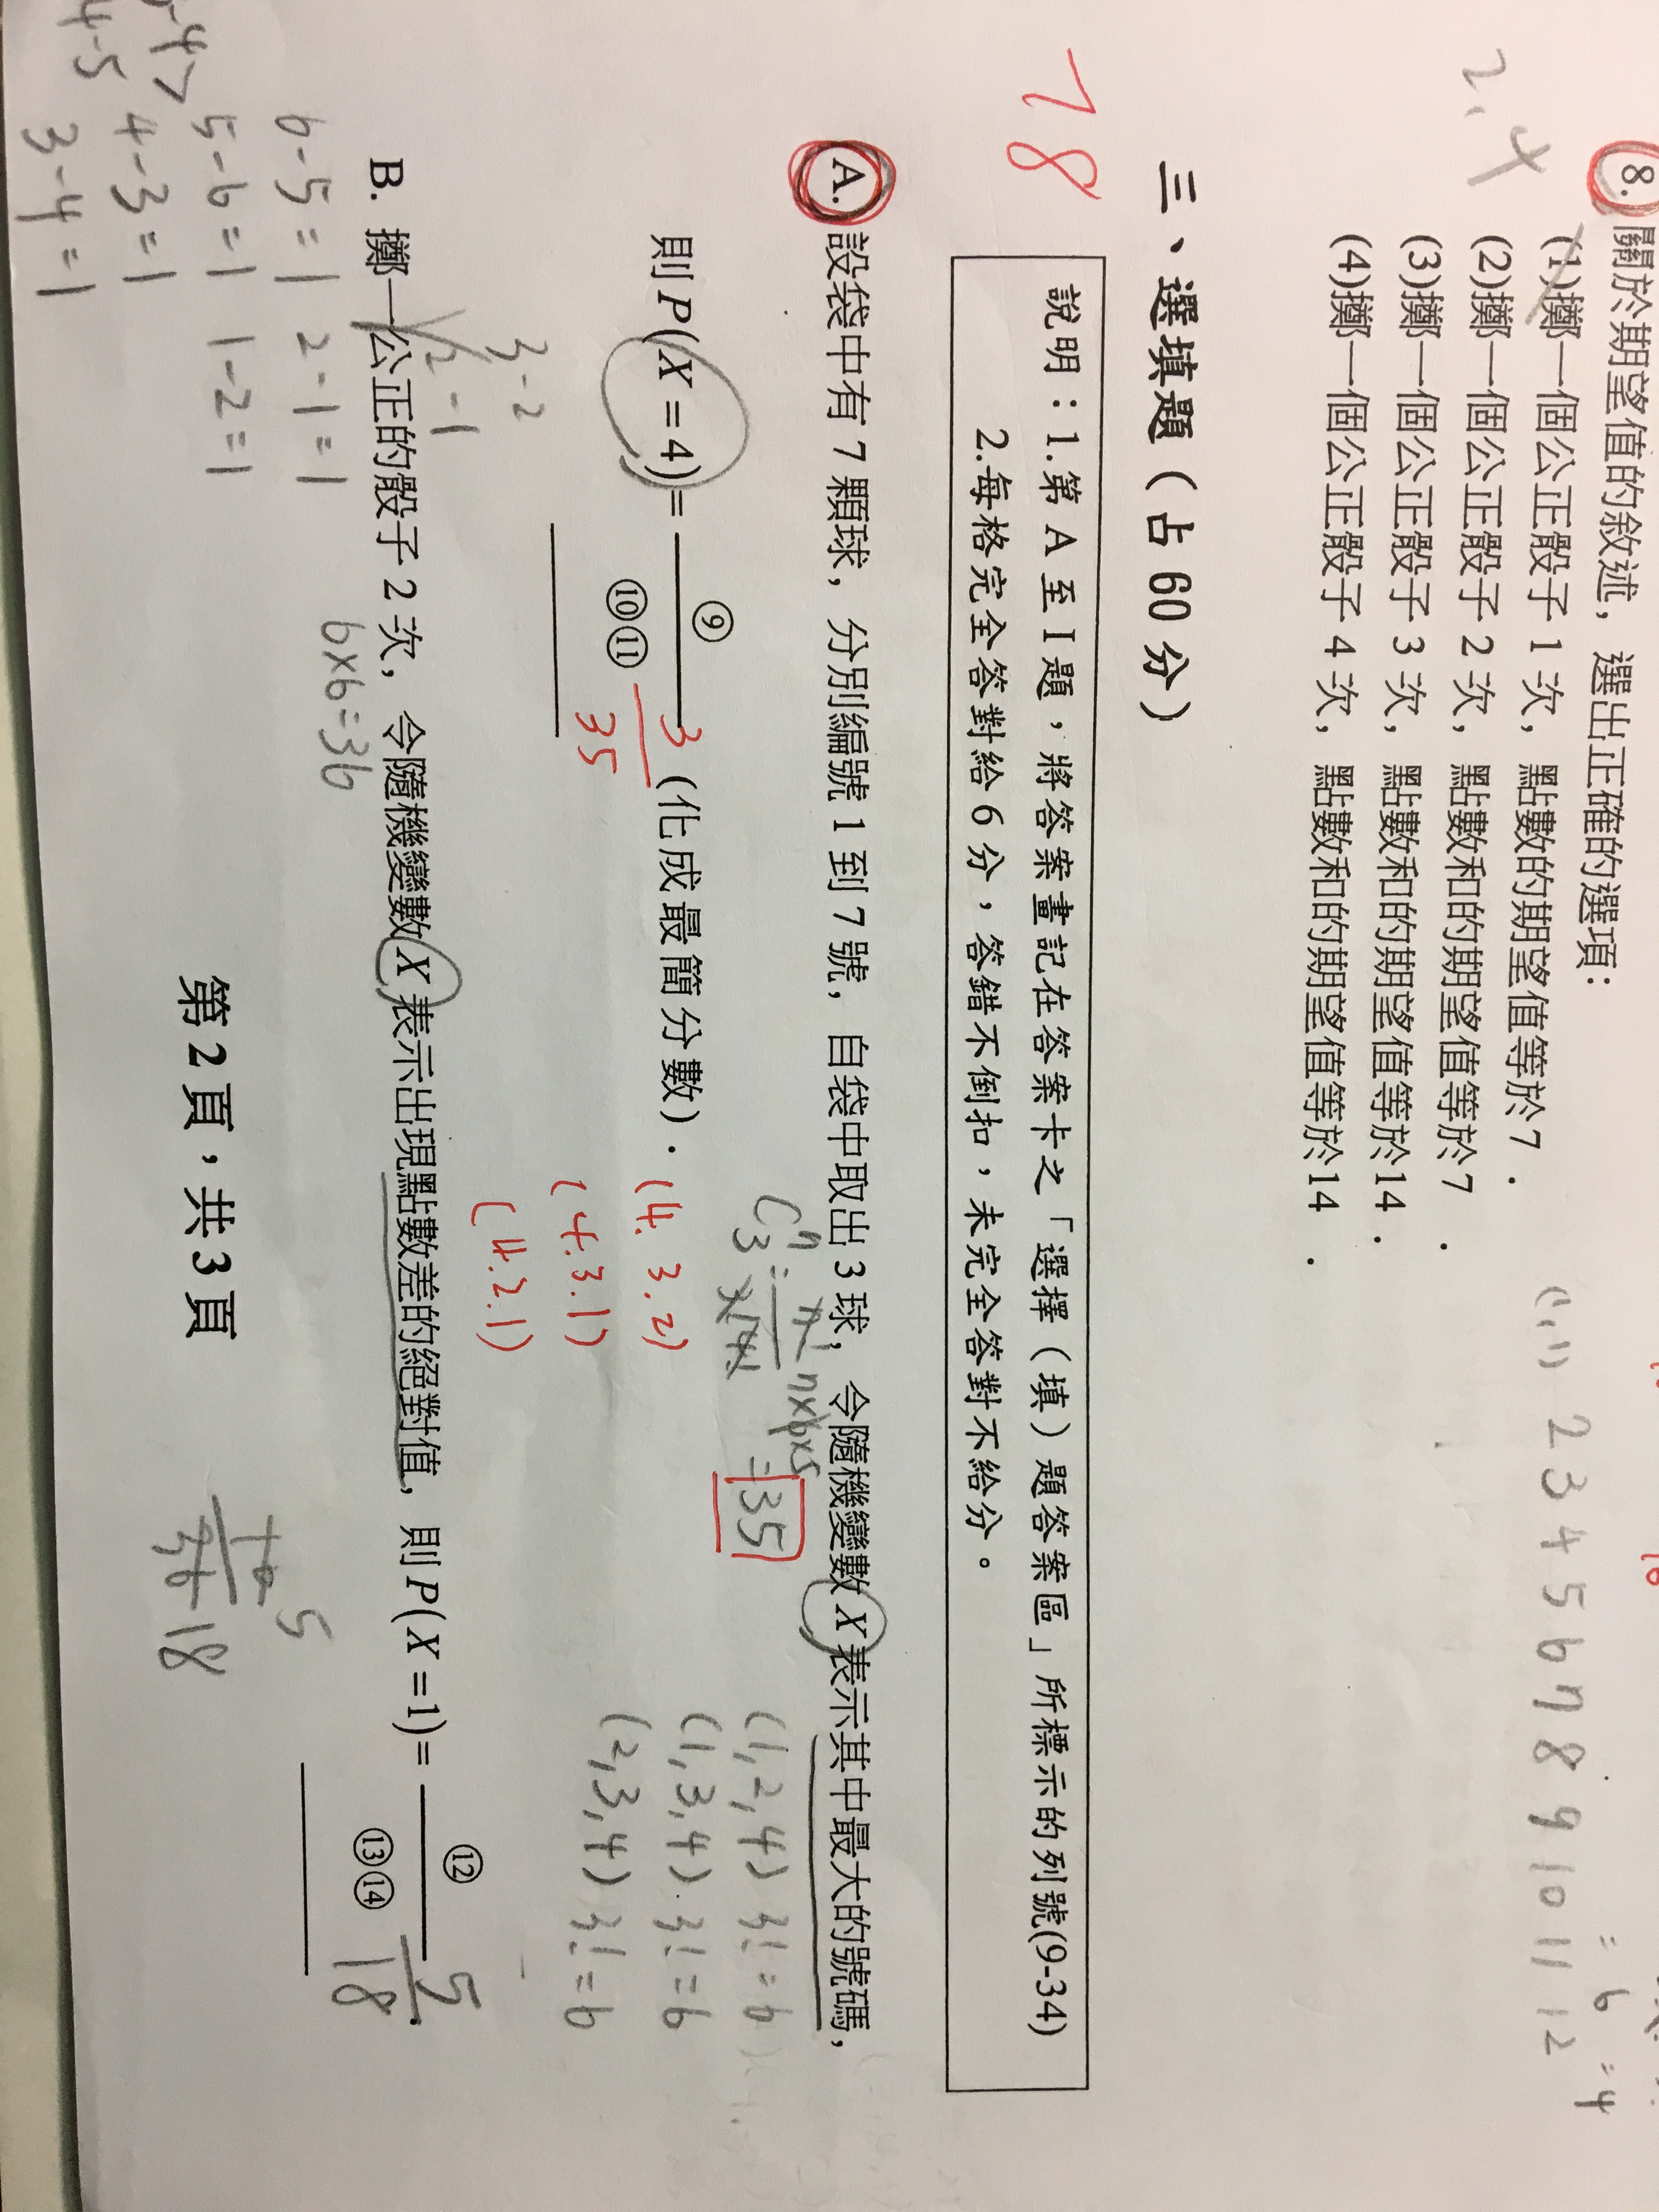 2, 4
8. 關於期望值的敘述，選出正確的選項：
(1)擲一個公正骰子 1 次，點數的期望值等於 7．
(2)擲一個公正骰子 2 次，點數和的期望值等於 7．
(3)擲一個公正骰子 3 次，點數和的期望值等於 14．
(4)擲一個公正骰子 4 次，點數和的期望值等於 14．
(1,1) 2 3 4 5 6 7 8 9 10 11 12
= 6
= 4
三、選填題（占 60 分）
78
說明：1.第 A 至 I 題，將答案畫記在答案卡之「選擇（填）題答案區」所標示的列號(9-34)
2.每格完全答對給 6 分，答錯不倒扣，未完全答對不給分。
A. 設袋中有 7 顆球，分別編號 1 到 7 號，自袋中取出 3 球，令隨機變數 X 表示其中最大的號碼，
則 P(X = 4) = ⑨ / ⑩⑪ (化成最簡分數)．
3/35
= 35
(4.3.2)
(4.3.1)
(4.2.1)
(1,2,4) 3! = 6
(1,3,4) 3! = 6
(2,3,4) 3! = 6
3-2
2-1
B. 擲一公正的骰子 2 次，令隨機變數 X 表示出現點數差的絕對值，則 P(X = 1) = ⑫ / ⑬⑭ ．
5/18
6×6=36
6-5=1 2-1=1
5-6=1 1-2=1
4-3=1
3-4=1
4-5
10/36 5/18
第 2 頁，共 3 頁